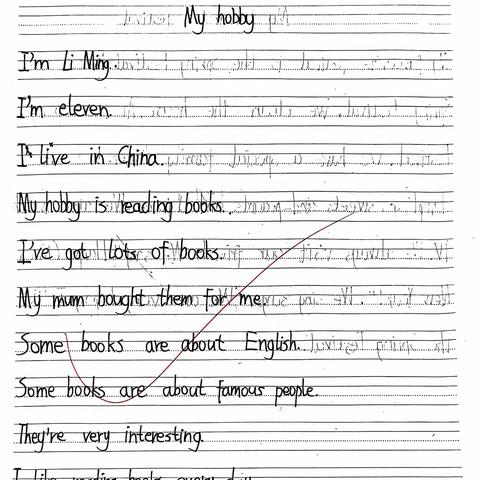 My hobby
I'm Li Ming.
I'm eleven.
I live in China.
My hobby is reading books.
I've got lots of books.
My mum bought them for me.
Some books are about English.
Some books are about famous people.
They're very interesting.
I like reading books every day.